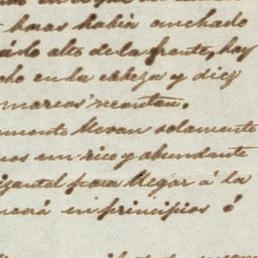 horas había anchado
á lo alto de la frente, hay
cho en la cabeza y diez
marcas
mente llevan solamente
nos un rico y abundante
izantal para llegar á la
nará en principios ó